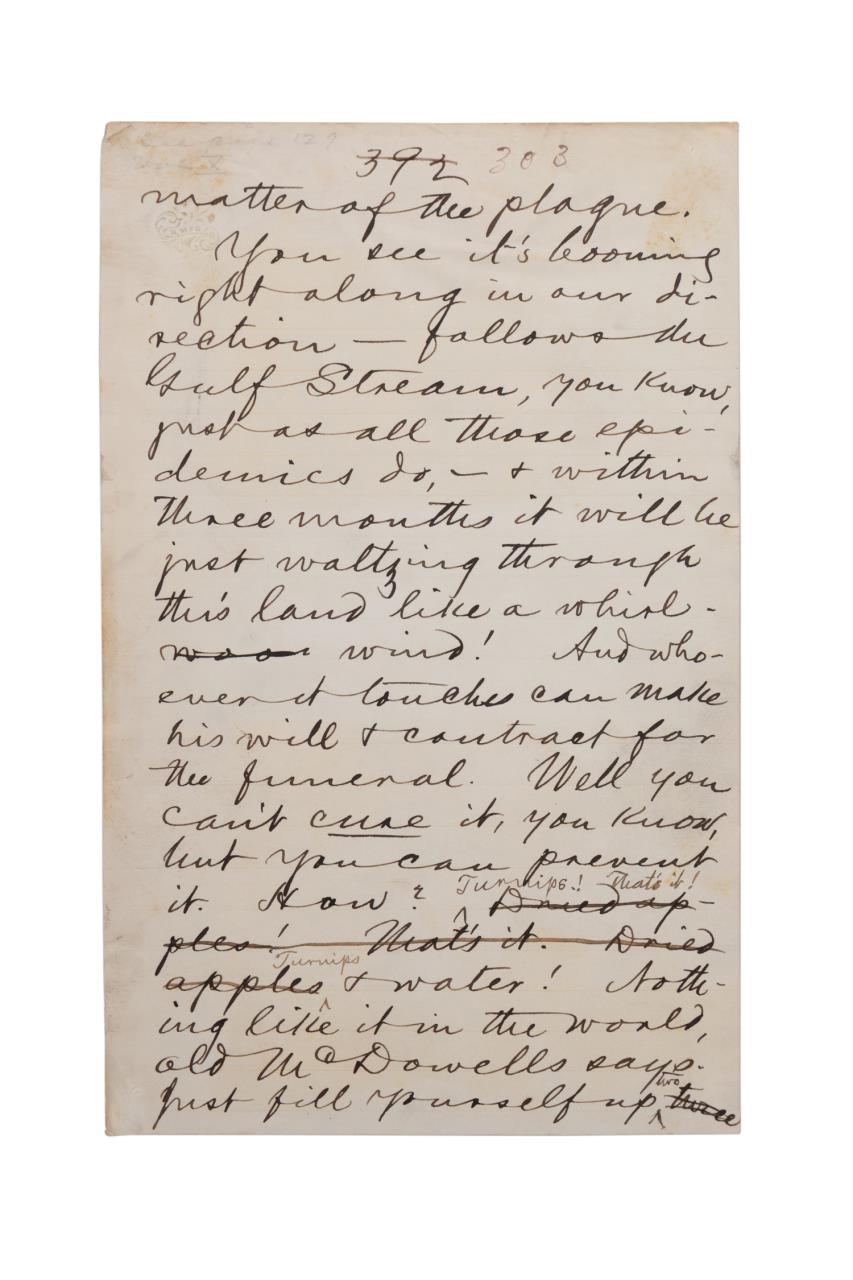 392 303
matter of the plague.
You see it's booming
right along in our di-
rection — follows the
Gulf Stream, you know,
just as all those epi-
demics do, — & within
three months it will be
just waltzing through
this land like a whirl-
wind! And who-
ever it touches can make
his will & contract for
the funeral. Well you
can't cure it, you know,
but you can prevent
Turnips! That's it!
it. How? Dried ap-
ples! That's it. Dried
Turnips
apples & water! Noth-
ing like it in the world,
old McDowells says.
two
Just fill yourself up twice